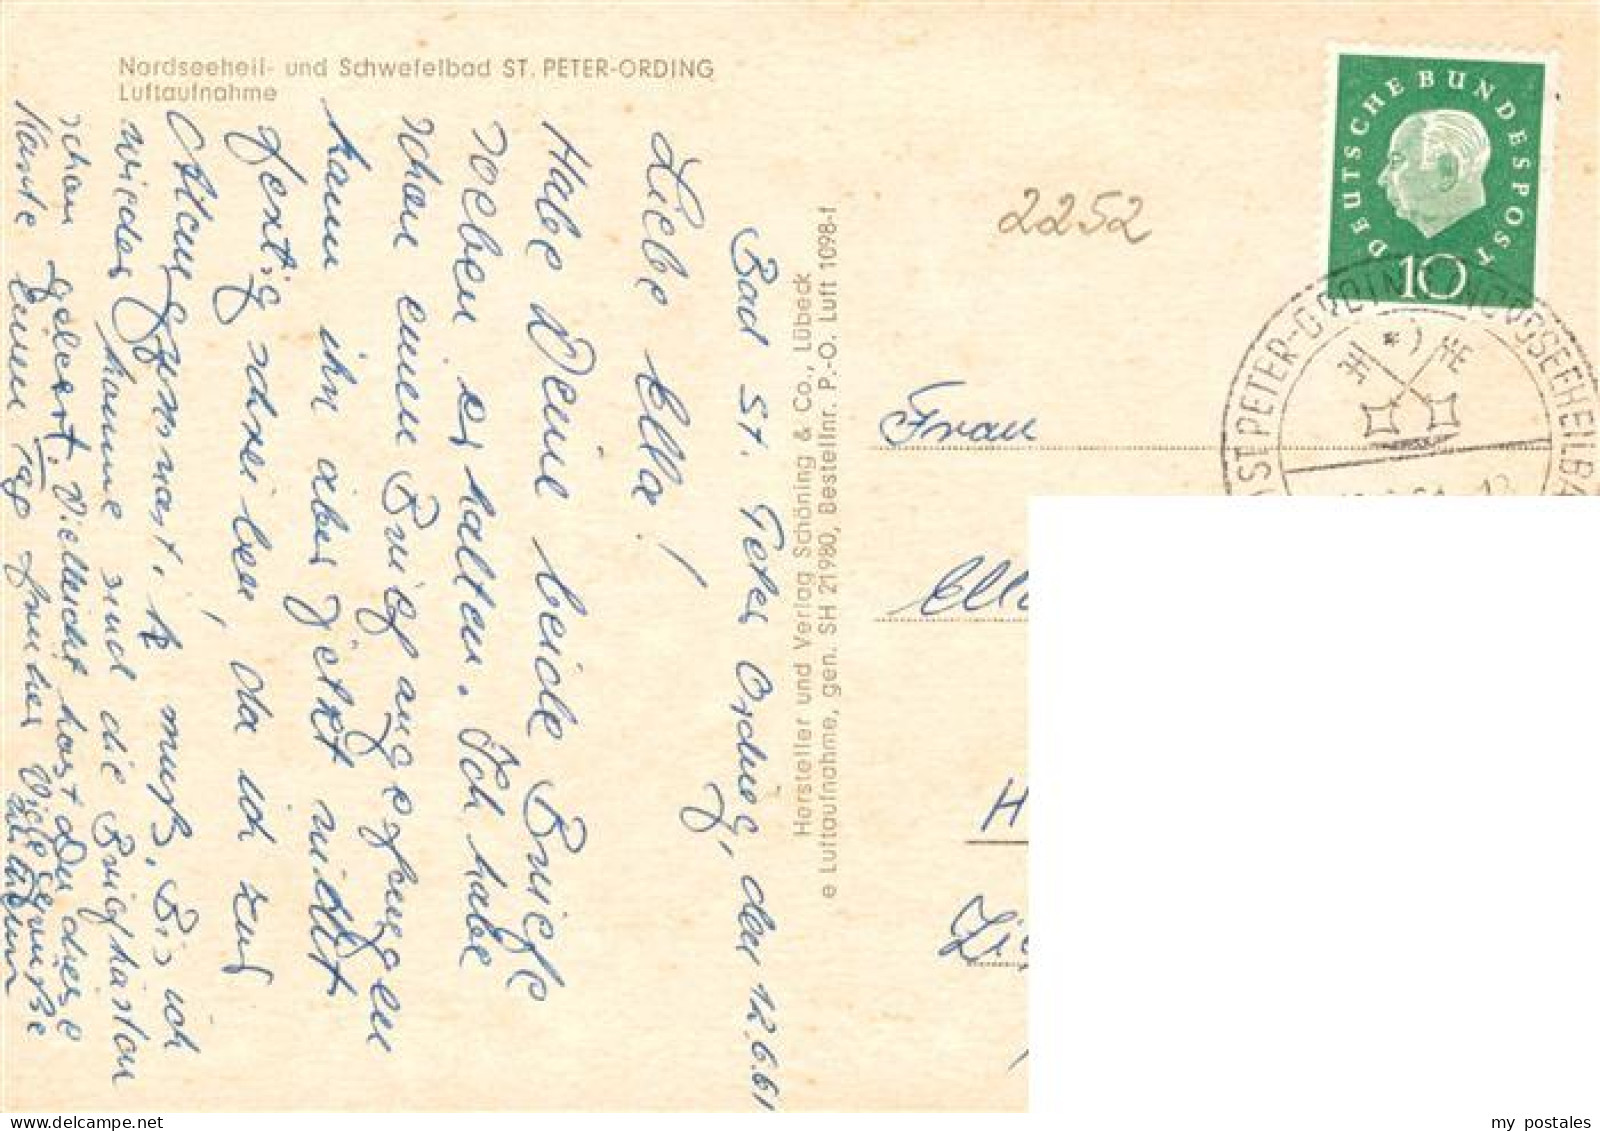 Nordseeheil- und Schwefelbad ST. PETER-ORDING
Luftaufnahme
Bad St. Peter Ording, den 12.6.61
Liebe Ella!
Habe Deine beide Briefe
soeben erhalten. Ich habe
schon einen Brief angefangen
kann ihn aber jetzt nicht
fertig schreiben, da ich zur
Atemgymnast. muß. Bis ich
wieder komme sind die Briefkästen
schon geleert. Vielleicht hast Du diese
Karte einen Tag früher Viele Grüße
Hersteller und Verlag Schöning & Co., Lübeck
e Luftaufnahme, gen. SH 21980, Bestellnr. P.-O. Luft 1098-f
2252
DEUTSCHE BUNDESPOST
10
ST PETER-ORDING NORDSEEHEILBA
Frau
Ell
H
my postales